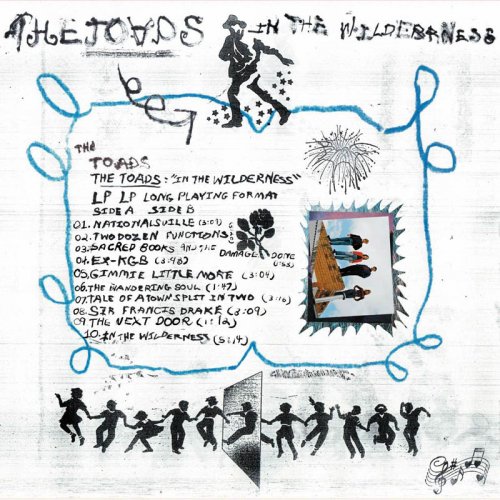 THE TOADS IN THE WILDERNESS
THE
TOADS
THE TOADS: "IN THE WILDERNESS"
LP LP LONG PLAYING FORMAT
SIDE A SIDE B
01. NATIONALSVILLE (3:07)
02. TWO DOZEN FUNCTIONS
03. SACRED BOOKS AND THE DAMAGE DONE
04. EX-KGB (3:48)
05. GIMMIE LITTLE MORE (3:04)
06. THE WANDERING SOUL (1:47)
07. TALE OF A TOWN SPLIT IN TWO (3:16)
08. SIR FRANCIS DRAKE (3:09)
09. THE NEXT DOOR (1:12)
10. IN THE WILDERNESS (5:14)